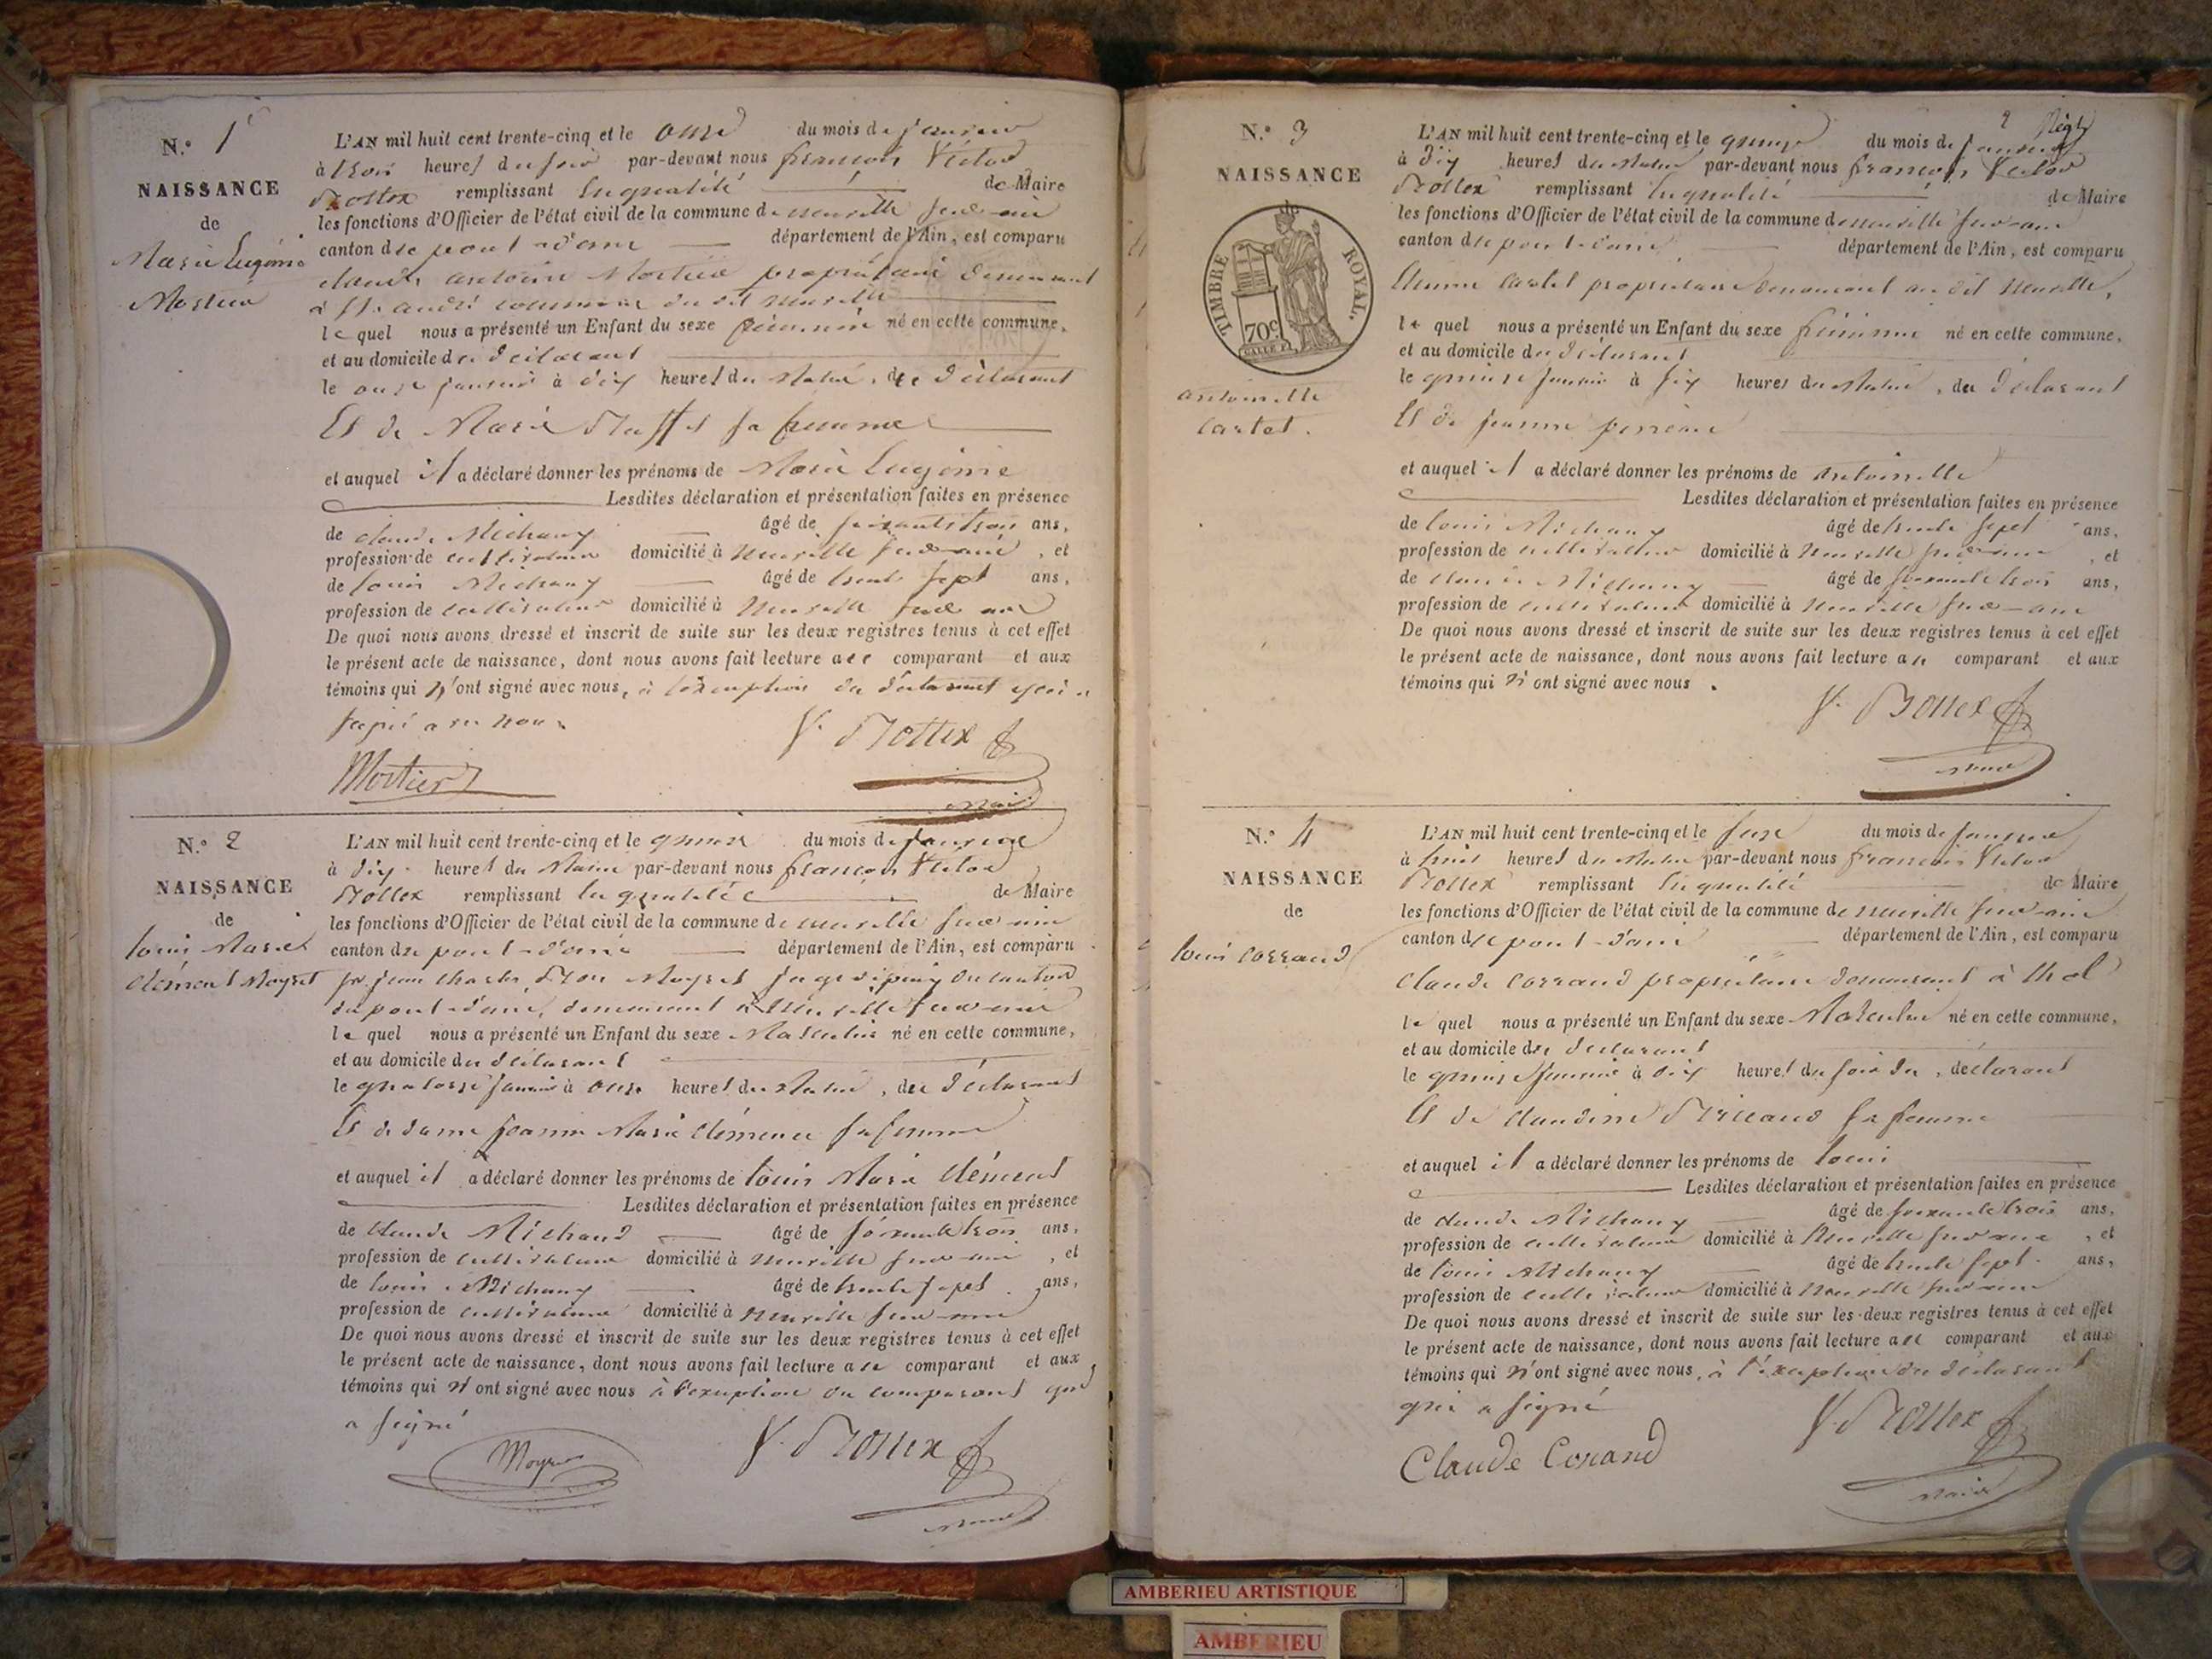 N.° 1
NAISSANCE
de
Marie Eugénie
Mortier
L'AN mil huit cent trente-cinq et le onze du mois de janvier
à trois heures du soir par-devant nous françois Victor
Bottex remplissant en qualité de Maire
les fonctions d'Officier de l'état civil de la commune de neuville sur ain
canton de pont d'ain département de l'Ain, est comparu
claude antoine Mortier propriétaire demeurant
à St. andré commune du dit neuville
le quel nous a présenté un Enfant du sexe féminin né en cette commune,
et au domicile du déclarant
le onze janvier à dix heures du Matin, du déclarant
Et de Marie sa femme
et auquel il a déclaré donner les prénoms de Marie Eugénie
Lesdites déclaration et présentation faites en présence
de claude Michaux âgé de soixante trois ans,
profession de cultivateur domicilié à Neuville sur ain, et
de louis Michaux âgé de trente sept ans,
profession de cultivateur domicilié à Neuville sur ain
De quoi nous avons dressé et inscrit de suite sur les deux registres tenus à cet effet
le présent acte de naissance, dont nous avons fait lecture au comparant et aux
témoins qui n'ont signé avec nous, à l'exception du déclarant qui a
signé avec nous
Mortier V. Bottex
maire
N.° 2
NAISSANCE
de
louis Marie
clément Moyret
L'AN mil huit cent trente-cinq et le quinze du mois de janvier
à dix heures du Matin par-devant nous françois Victor
Bottex remplissant en qualité de Maire
les fonctions d'Officier de l'état civil de la commune de neuville sur ain
canton de pont-d'ain département de l'Ain, est comparu
jean charles Moyret juge de paix du canton
du pont d'ain, demeurant à Neuville sur ain
le quel nous a présenté un Enfant du sexe Masculin né en cette commune,
et au domicile du déclarant
le quatorze janvier à onze heures du Matin, du déclarant
Et de dame jeanne Marie clémence sa femme
et auquel il a déclaré donner les prénoms de louis Marie clément
Lesdites déclaration et présentation faites en présence
de claude Michaud âgé de soixante trois ans,
profession de cultivateur domicilié à neuville sur ain, et
de louis Michaux âgé de trente sept ans,
profession de cultivateur domicilié à neuville sur ain
De quoi nous avons dressé et inscrit de suite sur les deux registres tenus à cet effet
le présent acte de naissance, dont nous avons fait lecture au comparant et aux
témoins qui n'ont signé avec nous à l'exception du comparant qui
a signé
Moyret V. Bottex
maire
2
N.° 3
NAISSANCE
de
TIMBRE ROYAL.
70c.
antoinette
Cartet.
L'AN mil huit cent trente-cinq et le quinze du mois de janvier
à dix heures du Matin par-devant nous françois Victor
Bottex remplissant en qualité de Maire
les fonctions d'Officier de l'état civil de la commune de neuville sur ain
canton de pont-d'ain département de l'Ain, est comparu
Cartet propriétaire demeurant au dit Neuville,
le quel nous a présenté un Enfant du sexe féminin né en cette commune,
et au domicile du déclarant
le quinze janvier à six heures du Matin, du déclarant
Et de jeanne
et auquel il a déclaré donner les prénoms de antoinette
Lesdites déclaration et présentation faites en présence
de louis Michaux âgé de trente sept ans,
profession de cultivateur domicilié à Neuville sur ain, et
de claude Michaux âgé de soixante trois ans,
profession de cultivateur domicilié à Neuville sur-ain
De quoi nous avons dressé et inscrit de suite sur les deux registres tenus à cet effet
le présent acte de naissance, dont nous avons fait lecture au comparant et aux
témoins qui n'ont signé avec nous.
V. Bottex
maire
N.° 4
NAISSANCE
de
louis Corrand
L'AN mil huit cent trente-cinq et le seize du mois de janvier
à huit heures du Matin par-devant nous françois Victor
Bottex remplissant en qualité de Maire
les fonctions d'Officier de l'état civil de la commune de neuville sur-ain
canton de pont-d'ain département de l'Ain, est comparu
Claude Corrand propriétaire demeurant à thol
le quel nous a présenté un Enfant du sexe Masculin né en cette commune,
et au domicile du déclarant
le quinze janvier à dix heures du soir du, déclarant
Et de claudine sa femme
et auquel il a déclaré donner les prénoms de louis
Lesdites déclaration et présentation faites en présence
de claude Michaux âgé de soixante trois ans,
profession de cultivateur domicilié à Neuville sur ain, et
de louis Michaux âgé de trente sept ans,
profession de cultivateur domicilié à Neuville sur ain
De quoi nous avons dressé et inscrit de suite sur les deux registres tenus à cet effet
le présent acte de naissance, dont nous avons fait lecture au comparant et aux
témoins qui n'ont signé avec nous, à l'exception du déclarant
qui a signé
Claude Corrand V. Bottex
maire
AMBERIEU ARTISTIQUE
AMBERIEU